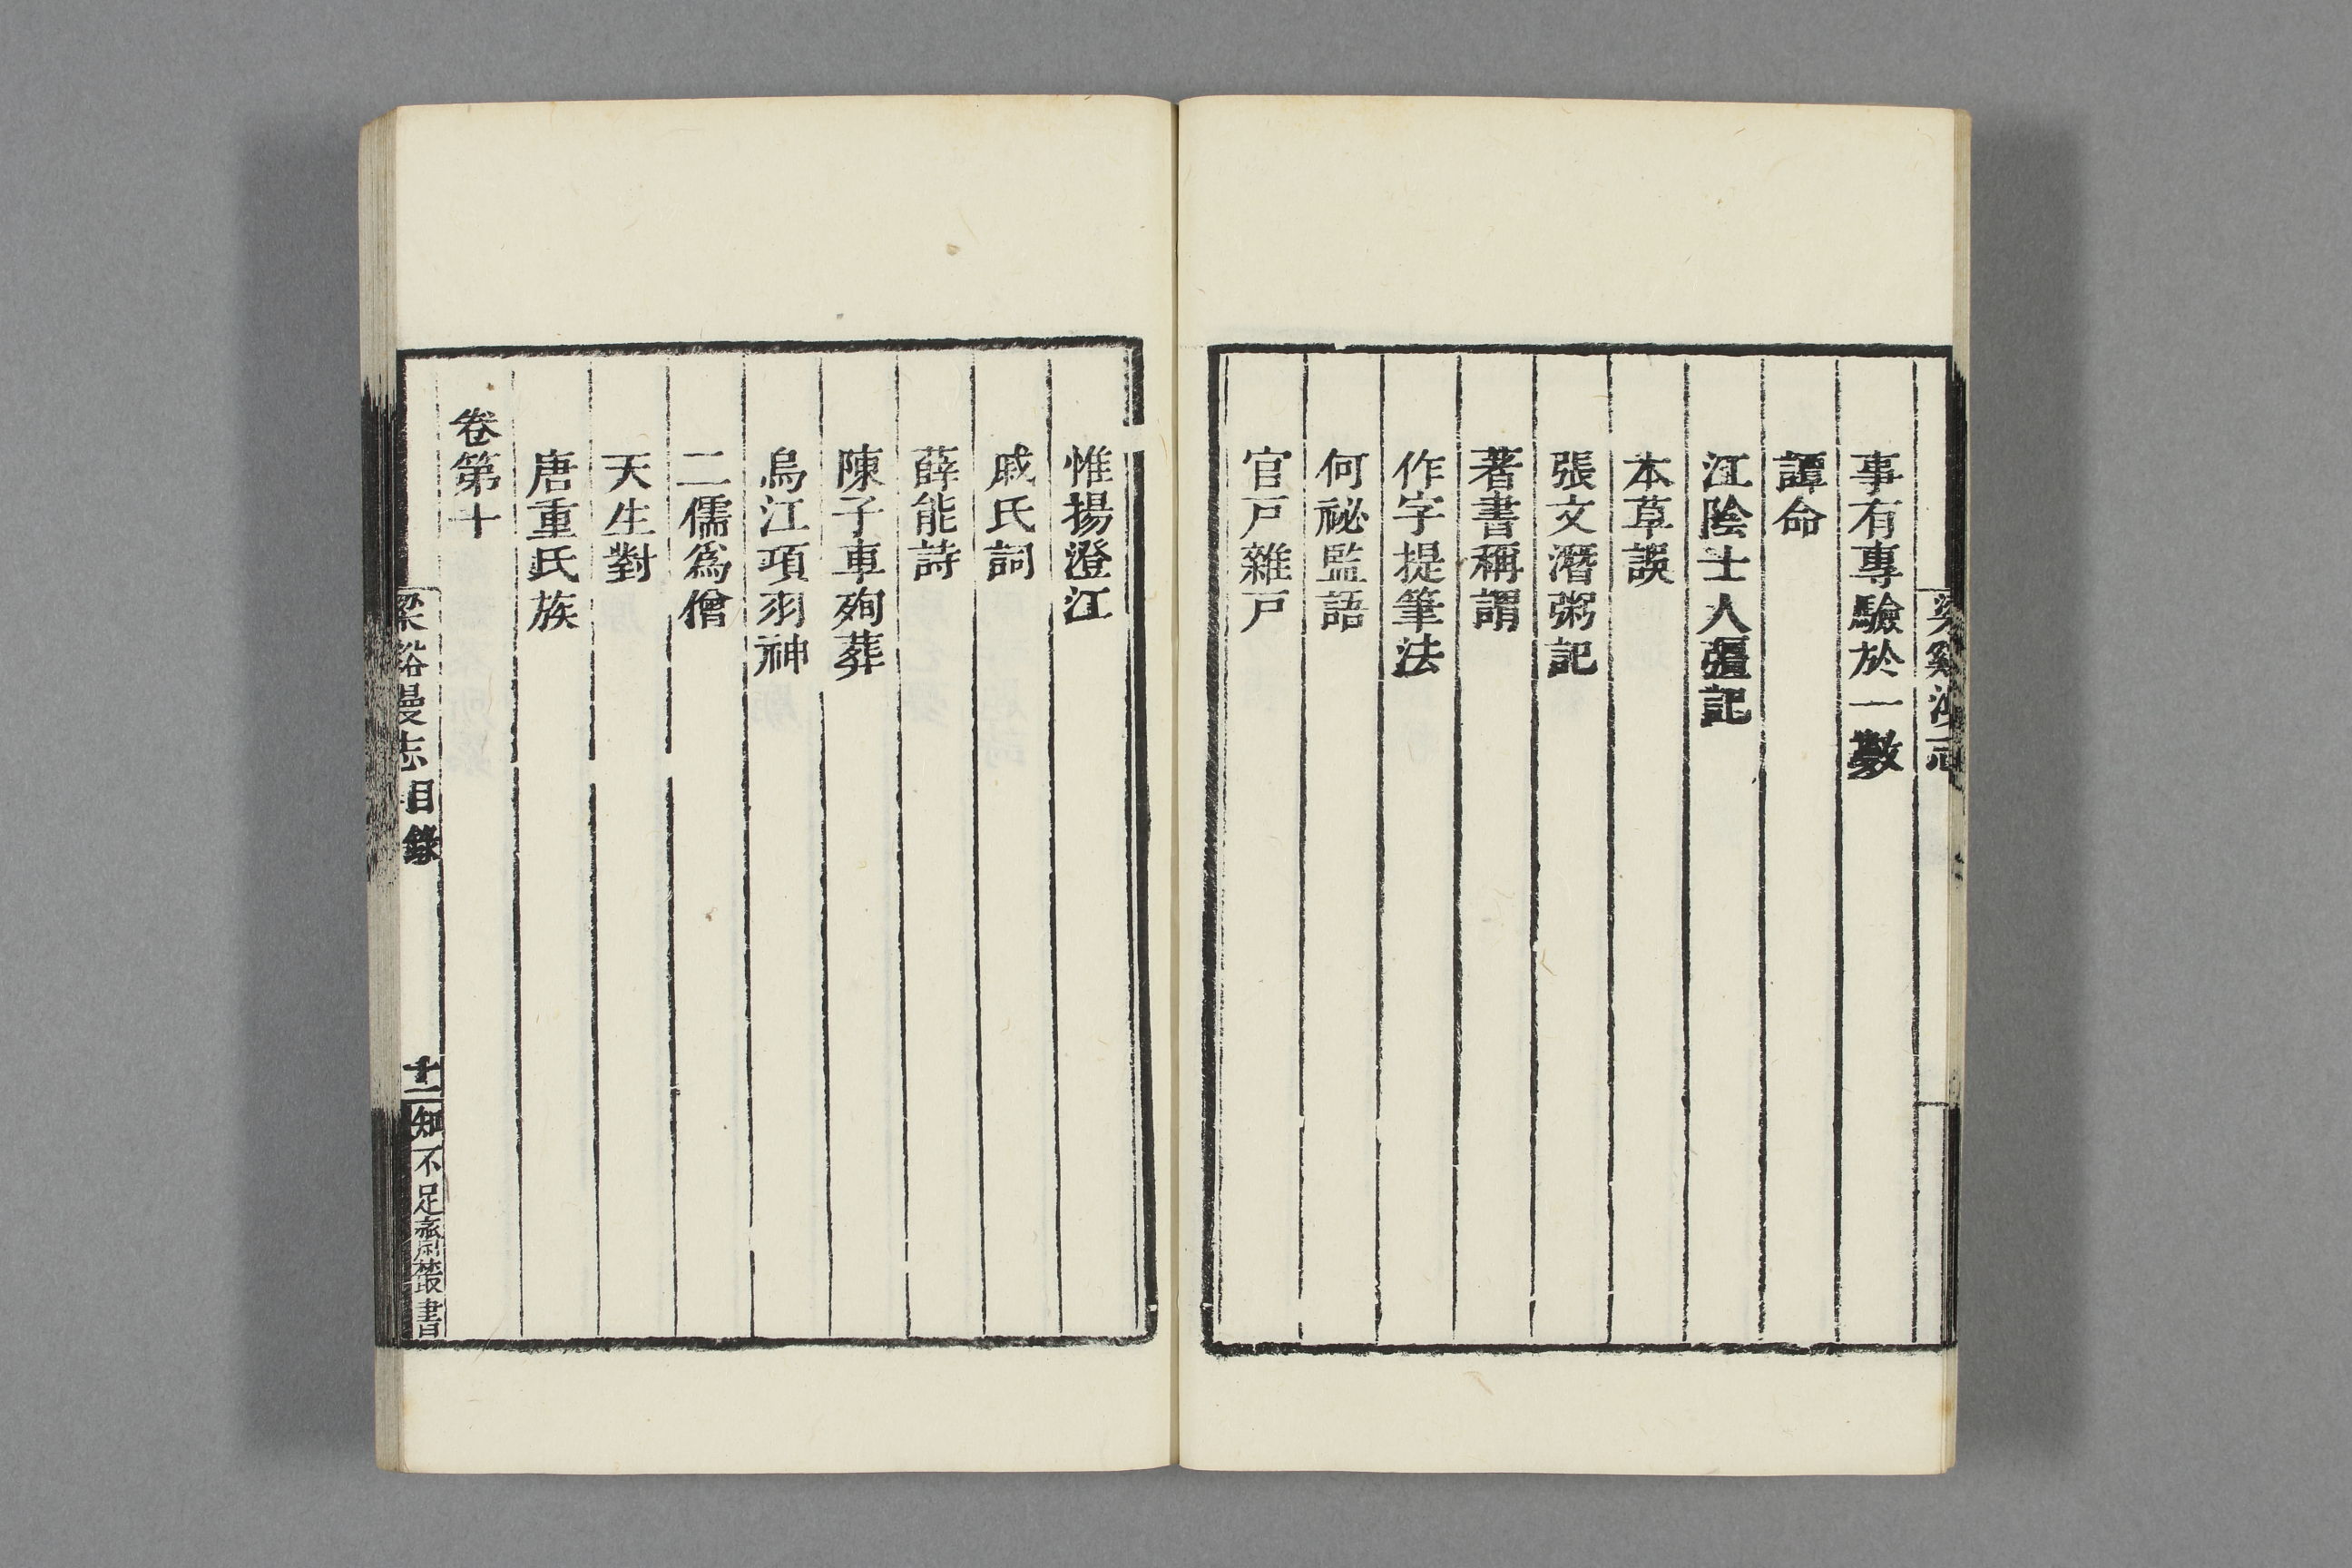 事有專驗於一數
譚命
江陰士人彊記
本草誤
張文潛粥記
著書稱謂
作字提筆法
何祕監語
官戸雜戸
惟揚澄江
戚氏詞
薛能詩
陳子車殉葬
烏江項羽神
二儒爲僧
天生對
唐重氏族
卷第十
梁谿漫志目錄
十一
知不足齋叢書